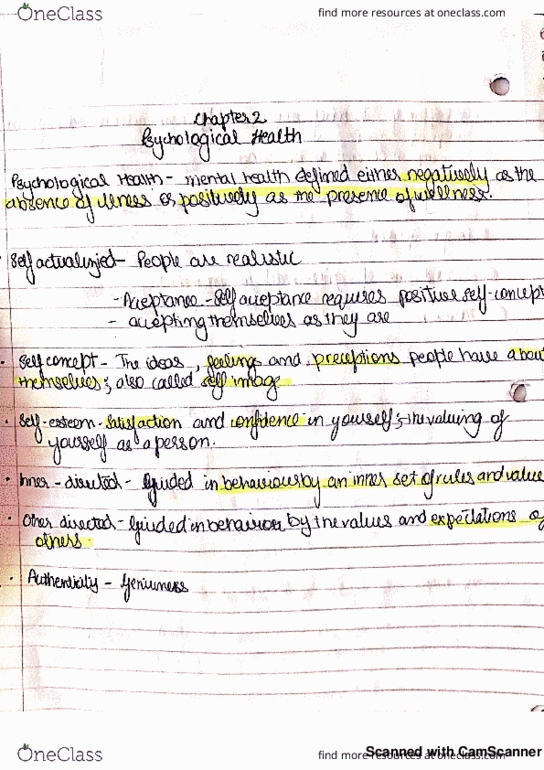 OneClass
find more resources at oneclass.com
Chapter 2
Psychological Health
Psychological Health - mental health defined either negatively as the
absence of illness or positively as the presence of wellness.
Self actualized - People are realistic
- Aceptance - Self acceptance requires positive self-concept
- accepting themselves as they are
• Self concept - The ideas, feelings and preceptions people have about
themselves; also called self image
• Self-esteem - satisfaction and confidence in yourself; the valuing of
yourself as a person.
• Inner-directed - Guided in behaviour by an inner set of rules and value
• Other directed - Guided in behaviour by the values and expectations of
others.
• Authenticity - Geniuness
OneClass
find more resources at oneclass.com
Scanned with CamScanner